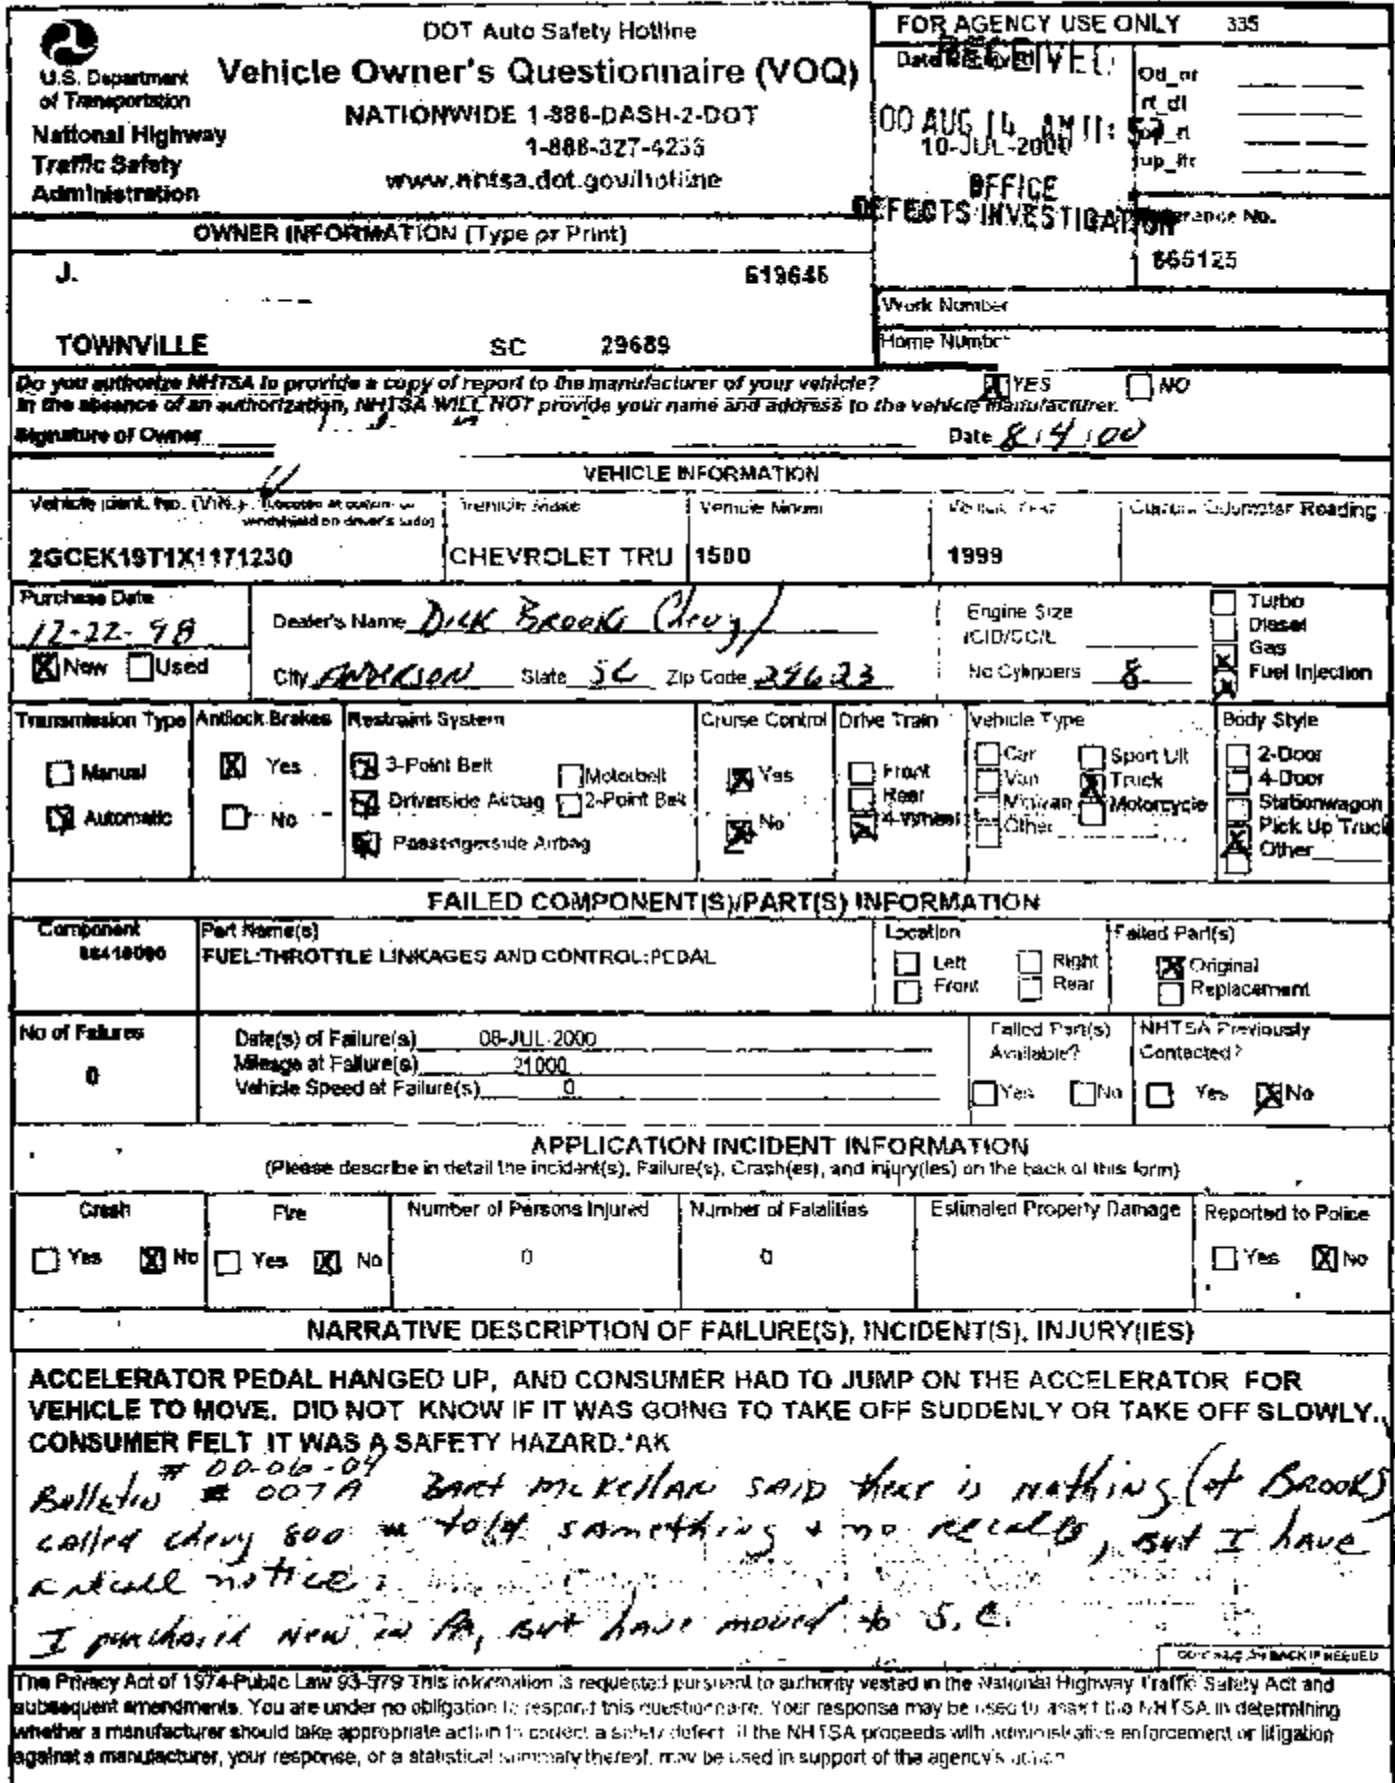 DOT Auto Safety Hotline
Vehicle Owner's Questionnaire (VOQ)
NATIONWIDE 1-888-DASH-2-DOT
1-888-327-4236
www.nhtsa.dot.gov/hotline
U.S. Department
of Transportation
National Highway
Traffic Safety
Administration
FOR AGENCY USE ONLY 335
Date Received
RECEIVED
00 AUG 14 AM 11:
10-JUL-2000
OFFICE
DEFECTS INVESTIGATION
Od_nr
rt_dt
up_ltr
Reference No.
OWNER INFORMATION (Type or Print)
J. 619646
TOWNVILLE SC 29689
Work Number
Home Number
Do you authorize NHTSA to provide a copy of report to the manufacturer of your vehicle? YES NO
In the absence of an authorization, NHTSA WILL NOT provide your name and address to the vehicle manufacturer.
Signature of Owner Date 8/4/00
VEHICLE INFORMATION
Vehicle Ident. No. (VIN.) (Located at bottom of
windshield on driver's side)
Vehicle Make
Vehicle Model
Vehicle Year
Current Odometer Reading
2GCEK19T1X1171230 CHEVROLET TRU 1500 1999
Purchase Date
12-22-98
New Used
Dealer's Name Dick Brooks Chevy
City ANDERSON State SC Zip Code 29623
Engine Size
(CID/CC/L
No Cylinders 8
Turbo
Diesel
Gas
Fuel Injection
Transmission Type
Manual
Automatic
Antilock Brakes
Yes
No
Restraint System
3-Point Belt Motorbelt
Driverside Airbag 2-Point Belt
Passengerside Airbag
Cruise Control
Yes
No
Drive Train
Front
Rear
4-Wheel
Vehicle Type
Car Sport Ult
Van Truck
Minivan Motorcycle
Other
Body Style
2-Door
4-Door
Stationwagon
Pick Up Truck
Other
FAILED COMPONENT(S)/PART(S) INFORMATION
Component
Part Name(s)
FUEL:THROTTLE LINKAGES AND CONTROL:PEDAL
Location
Left Right
Front Rear
Failed Part(s)
Original
Replacement
No of Failures
0
Date(s) of Failure(s) 08-JUL-2000
Mileage at Failure(s) 21000
Vehicle Speed at Failure(s) 0
Failed Part(s)
Available?
Yes No
NHTSA Previously
Contacted?
Yes No
APPLICATION INCIDENT INFORMATION
(Please describe in detail the incident(s), Failure(s), Crash(es), and injury(ies) on the back of this form)
Crash
Yes No
Fire
Yes No
Number of Persons Injured
0
Number of Fatalities
0
Estimated Property Damage
Reported to Police
Yes No
NARRATIVE DESCRIPTION OF FAILURE(S), INCIDENT(S), INJURY(IES)
ACCELERATOR PEDAL HANGED UP, AND CONSUMER HAD TO JUMP ON THE ACCELERATOR FOR
VEHICLE TO MOVE. DID NOT KNOW IF IT WAS GOING TO TAKE OFF SUDDENLY OR TAKE OFF SLOWLY.
CONSUMER FELT IT WAS A SAFETY HAZARD.*AK
# 00-06-04
Bulletin # 007A BART McKELLAR SAID there is nothing (at BROOKS)
called chevy 800 # told something + no recalls, But I have
recall notice.
I purchased New in PA, But have moved to S.C.
CONTINUE ON BACK IF NEEDED
The Privacy Act of 1974-Public Law 93-579 This information is requested pursuant to authority vested in the National Highway Traffic Safety Act and
subsequent amendments. You are under no obligation to respond this questionnaire. Your response may be used to assist the NHTSA in determining
whether a manufacturer should take appropriate action to correct a safety defect. If the NHTSA proceeds with administrative enforcement or litigation
against a manufacturer, your response, or a statistical summary thereof, may be used in support of the agency's action